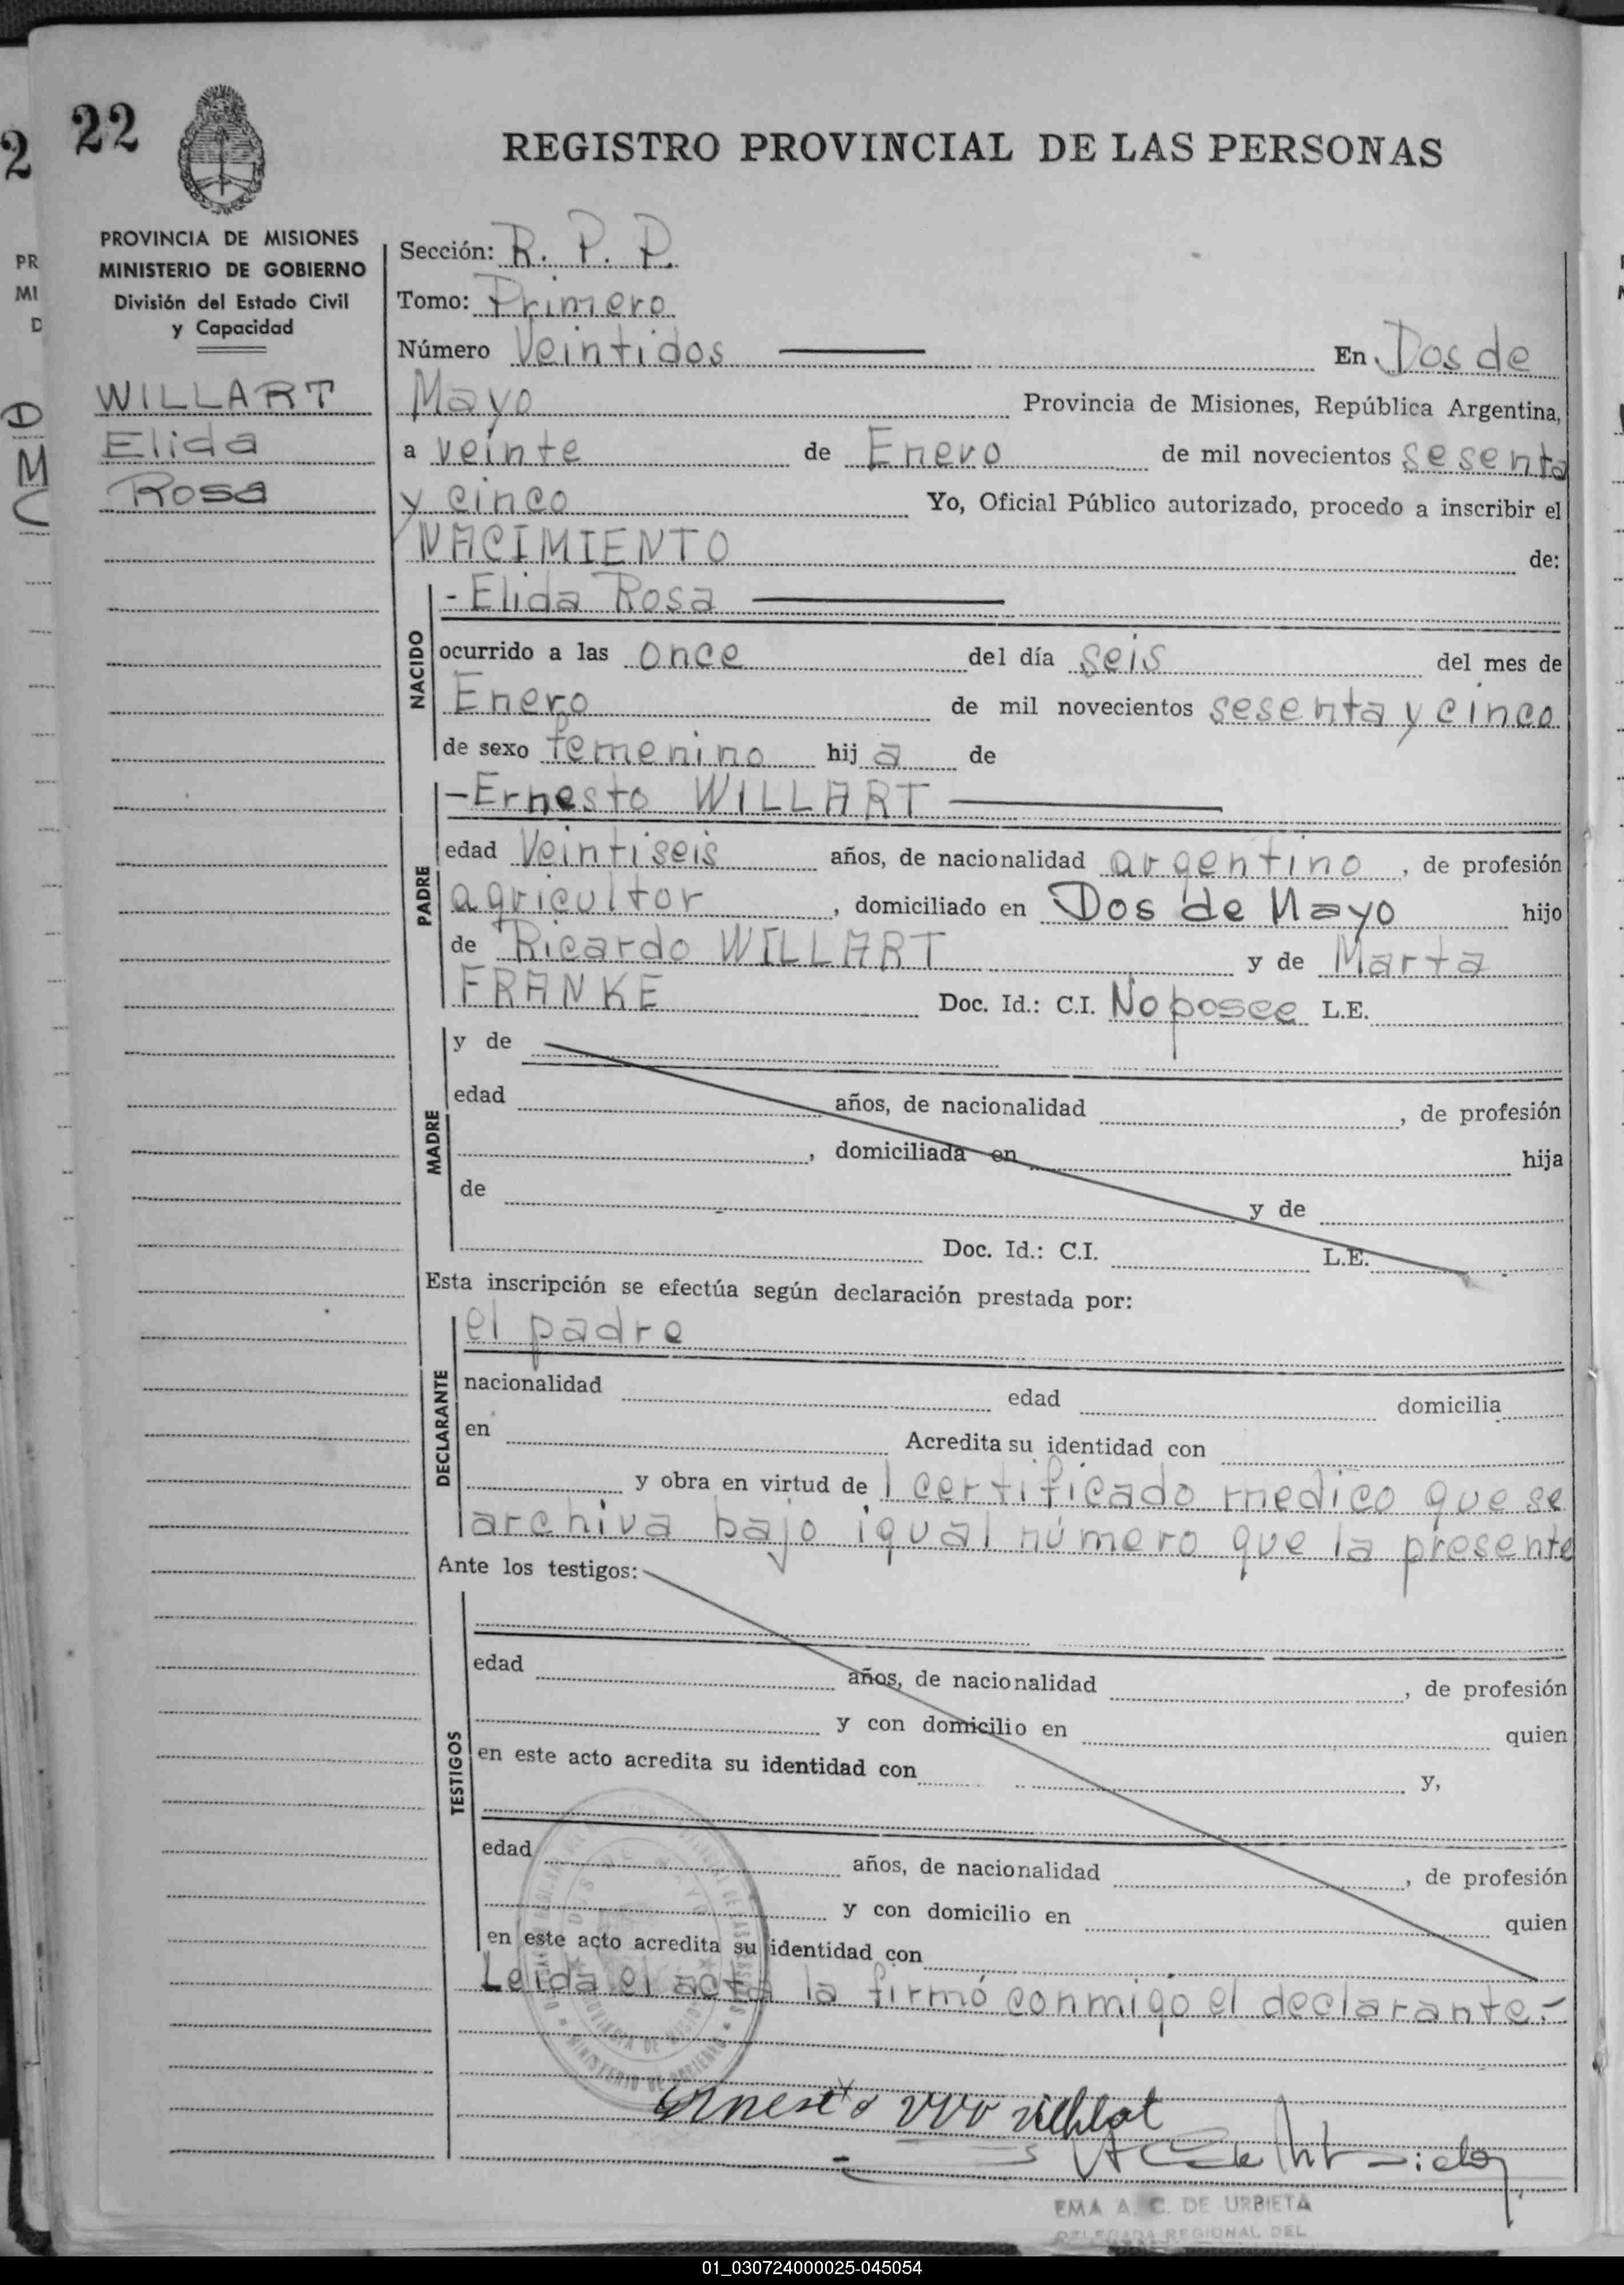 22
REGISTRO PROVINCIAL DE LAS PERSONAS
PROVINCIA DE MISIONES
MINISTERIO DE GOBIERNO
División del Estado Civil
y Capacidad
WILLART
Elida
Rosa
Sección: R. P. P.
Tomo: Primero
Número Veintidos En Dos de
Mayo Provincia de Misiones, República Argentina,
a veinte de Enero de mil novecientos sesenta
y cinco Yo, Oficial Público autorizado, procedo a inscribir el
NACIMIENTO de:
NACIDO
- Elida Rosa
ocurrido a las once del día seis del mes de
Enero de mil novecientos sesenta y cinco
de sexo femenino hij a de
PADRE
- Ernesto WILLART
edad Veintiseis años, de nacionalidad argentino, de profesión
agricultor, domiciliado en Dos de Mayo hijo
de Ricardo WILLART y de Marta
FRANKE Doc. Id.: C.I. No posee L.E.
MADRE
y de
edad años, de nacionalidad , de profesión
, domiciliada en hija
de y de
Doc. Id.: C.I. L.E.
Esta inscripción se efectúa según declaración prestada por:
DECLARANTE
el padre
nacionalidad edad domicilia
en Acredita su identidad con
y obra en virtud de 1 certificado medico que se
archiva bajo igual número que la presente
Ante los testigos:
TESTIGOS
edad años, de nacionalidad , de profesión
y con domicilio en quien
en este acto acredita su identidad con y,
edad años, de nacionalidad , de profesión
y con domicilio en quien
en este acto acredita su identidad con
Leida el acta la firmó conmigo el declarante.-
EMA A. C. DE URBIETA
DELEGADA REGIONAL DEL
01_030724000025-045054